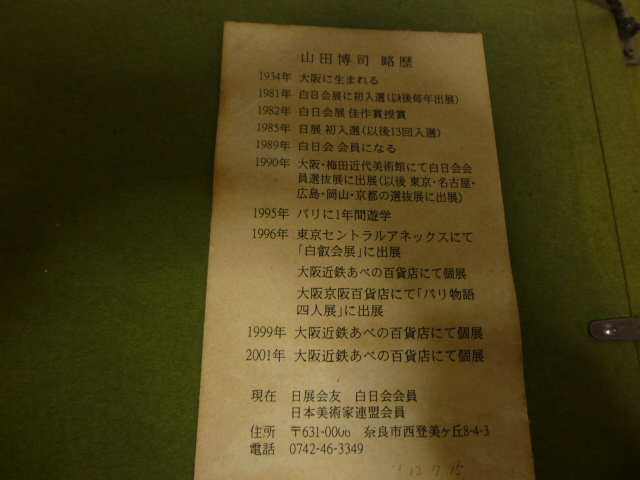 山田博司 略歴
1934年 大阪に生まれる
1981年 白日会展に初入選(以後毎年出展)
1982年 白日会展 佳作賞授賞
1985年 日展 初入選(以後13回入選)
1989年 白日会 会員になる
1990年 大阪・梅田近代美術館にて白日会会
員選抜展に出展(以後 東京・名古屋・
広島・岡山・京都の選抜展に出展)
1995年 パリに1年間遊学
1996年 東京セントラルアネックスにて
「白叡会展」に出展
大阪近鉄あべの百貨店にて個展
大阪京阪百貨店にて「パリ物語
四人展」に出展
1999年 大阪近鉄あべの百貨店にて個展
2001年 大阪近鉄あべの百貨店にて個展
現在 日展会友 白日会会員
日本美術家連盟会員
住所 〒631-0006 奈良市西登美ヶ丘8-4-3
電話 0742-46-3349
13.7.15